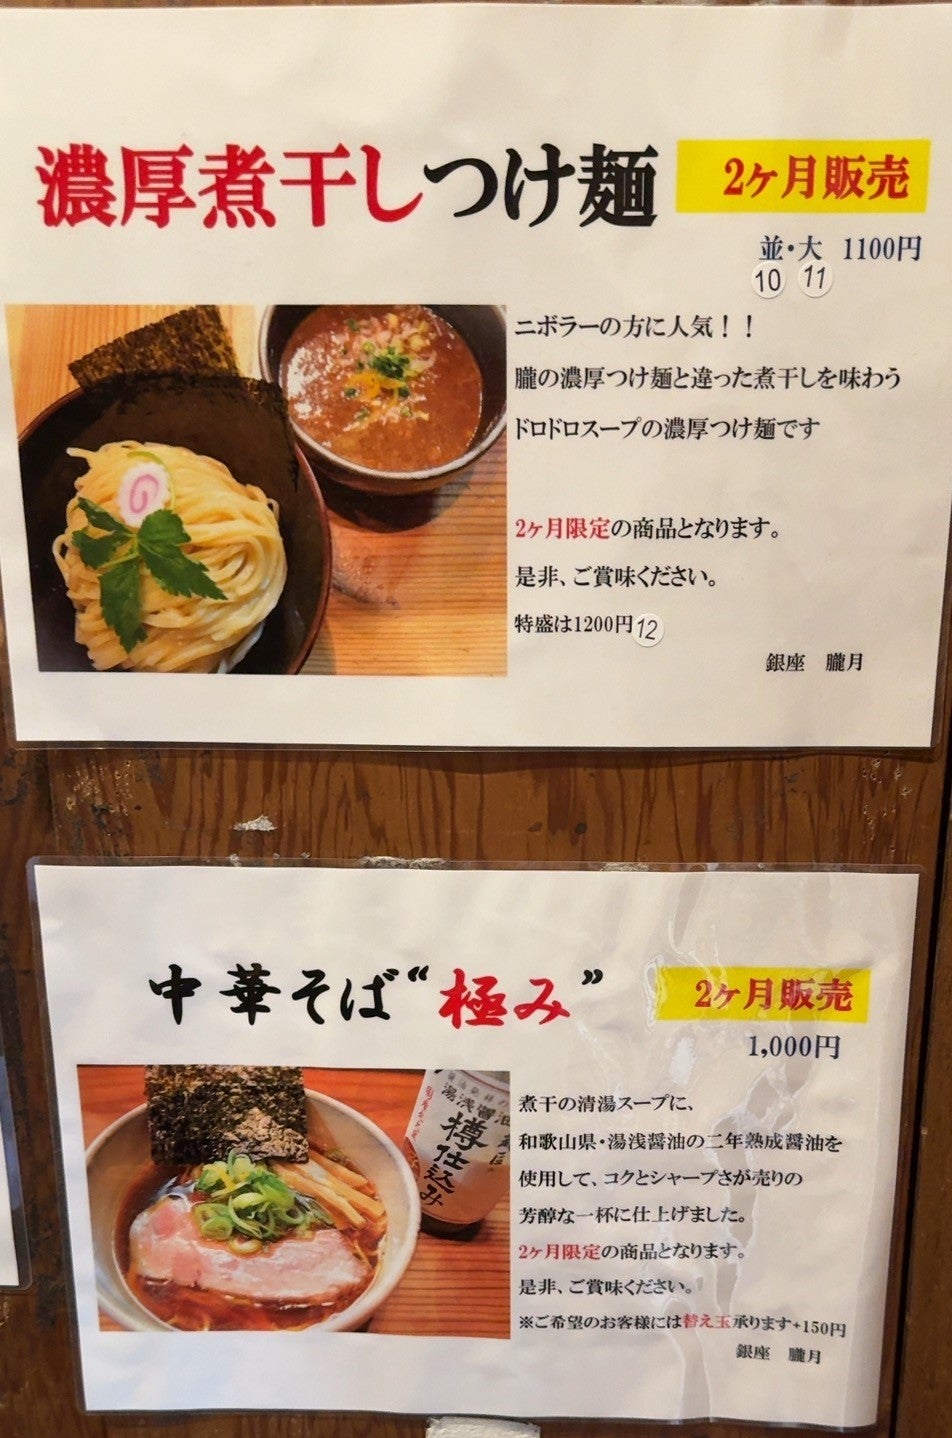 濃厚煮干しつけ麺
2ヶ月販売
並・大 1100円
10 11
ニボラーの方に人気！！
朧の濃厚つけ麺と違った煮干しを味わう
ドロドロスープの濃厚つけ麺です
2ヶ月限定の商品となります。
是非、ご賞味ください。
特盛は1200円 12
銀座 朧月
中華そば“極み”
2ヶ月販売
1,000円
煮干の清湯スープに、
和歌山県・湯浅醤油の二年熟成醤油を
使用して、コクとシャープさが売りの
芳醇な一杯に仕上げました。
2ヶ月限定の商品となります。
是非、ご賞味ください。
※ご希望のお客様には替え玉承ります+150円
銀座 朧月
湯浅醤油
樽仕込み